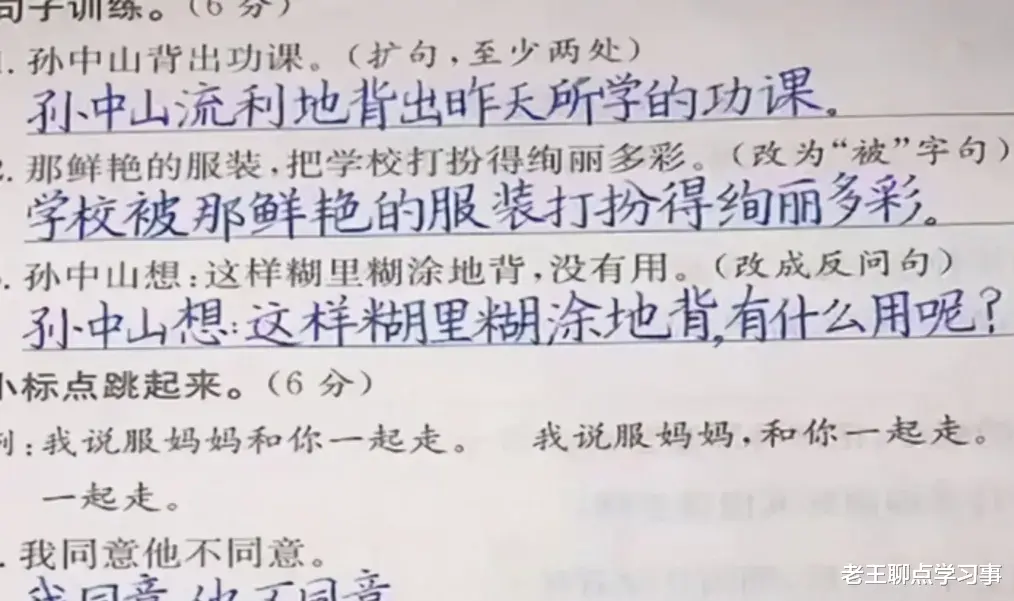 句子训练。(6 分)
1. 孙中山背出功课。(扩句,至少两处)
孙中山流利地背出昨天所学的功课。
2. 那鲜艳的服装,把学校打扮得绚丽多彩。(改为“被”字句)
学校被那鲜艳的服装打扮得绚丽多彩。
. 孙中山想:这样糊里糊涂地背,没有用。(改成反问句)
孙中山想:这样糊里糊涂地背,有什么用呢?
小标点跳起来。(6 分)
例:我说服妈妈和你一起走。 我说服妈妈,和你一起走。
一起走。
. 我同意他不同意。
我同意,他不同意
老王聊点学习事